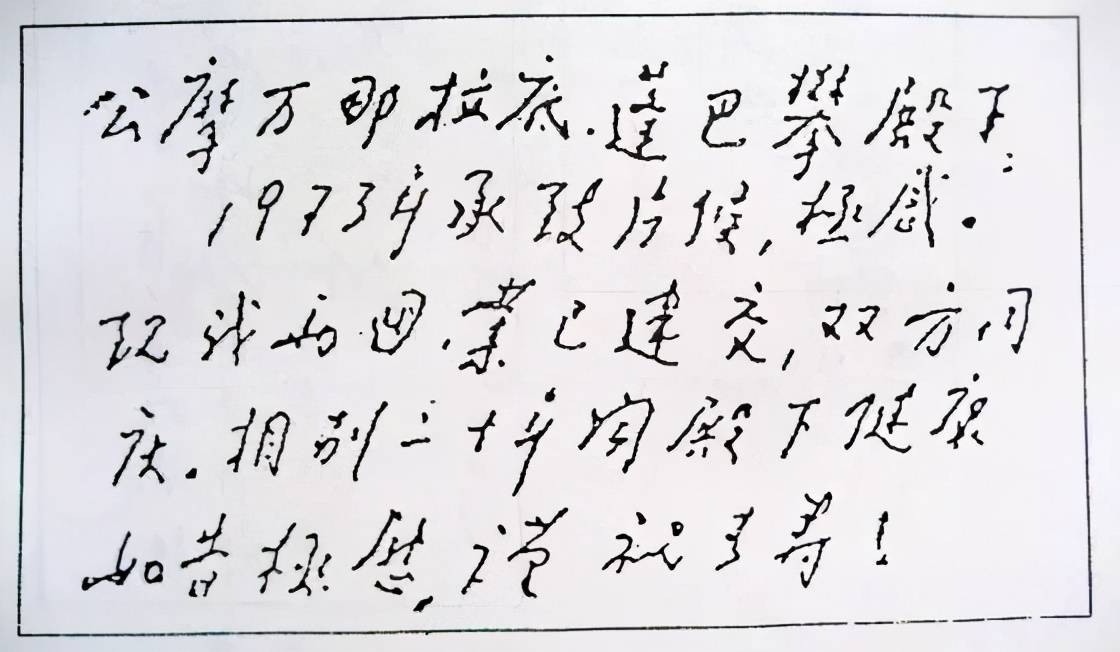 公摩万那拉底.蓬巴攀殿下:
1973年承致片候,极感.
现我两国业已建交,双方同
庆.相别二十年闻殿下健康
如昔极慰,谨祝多寿!